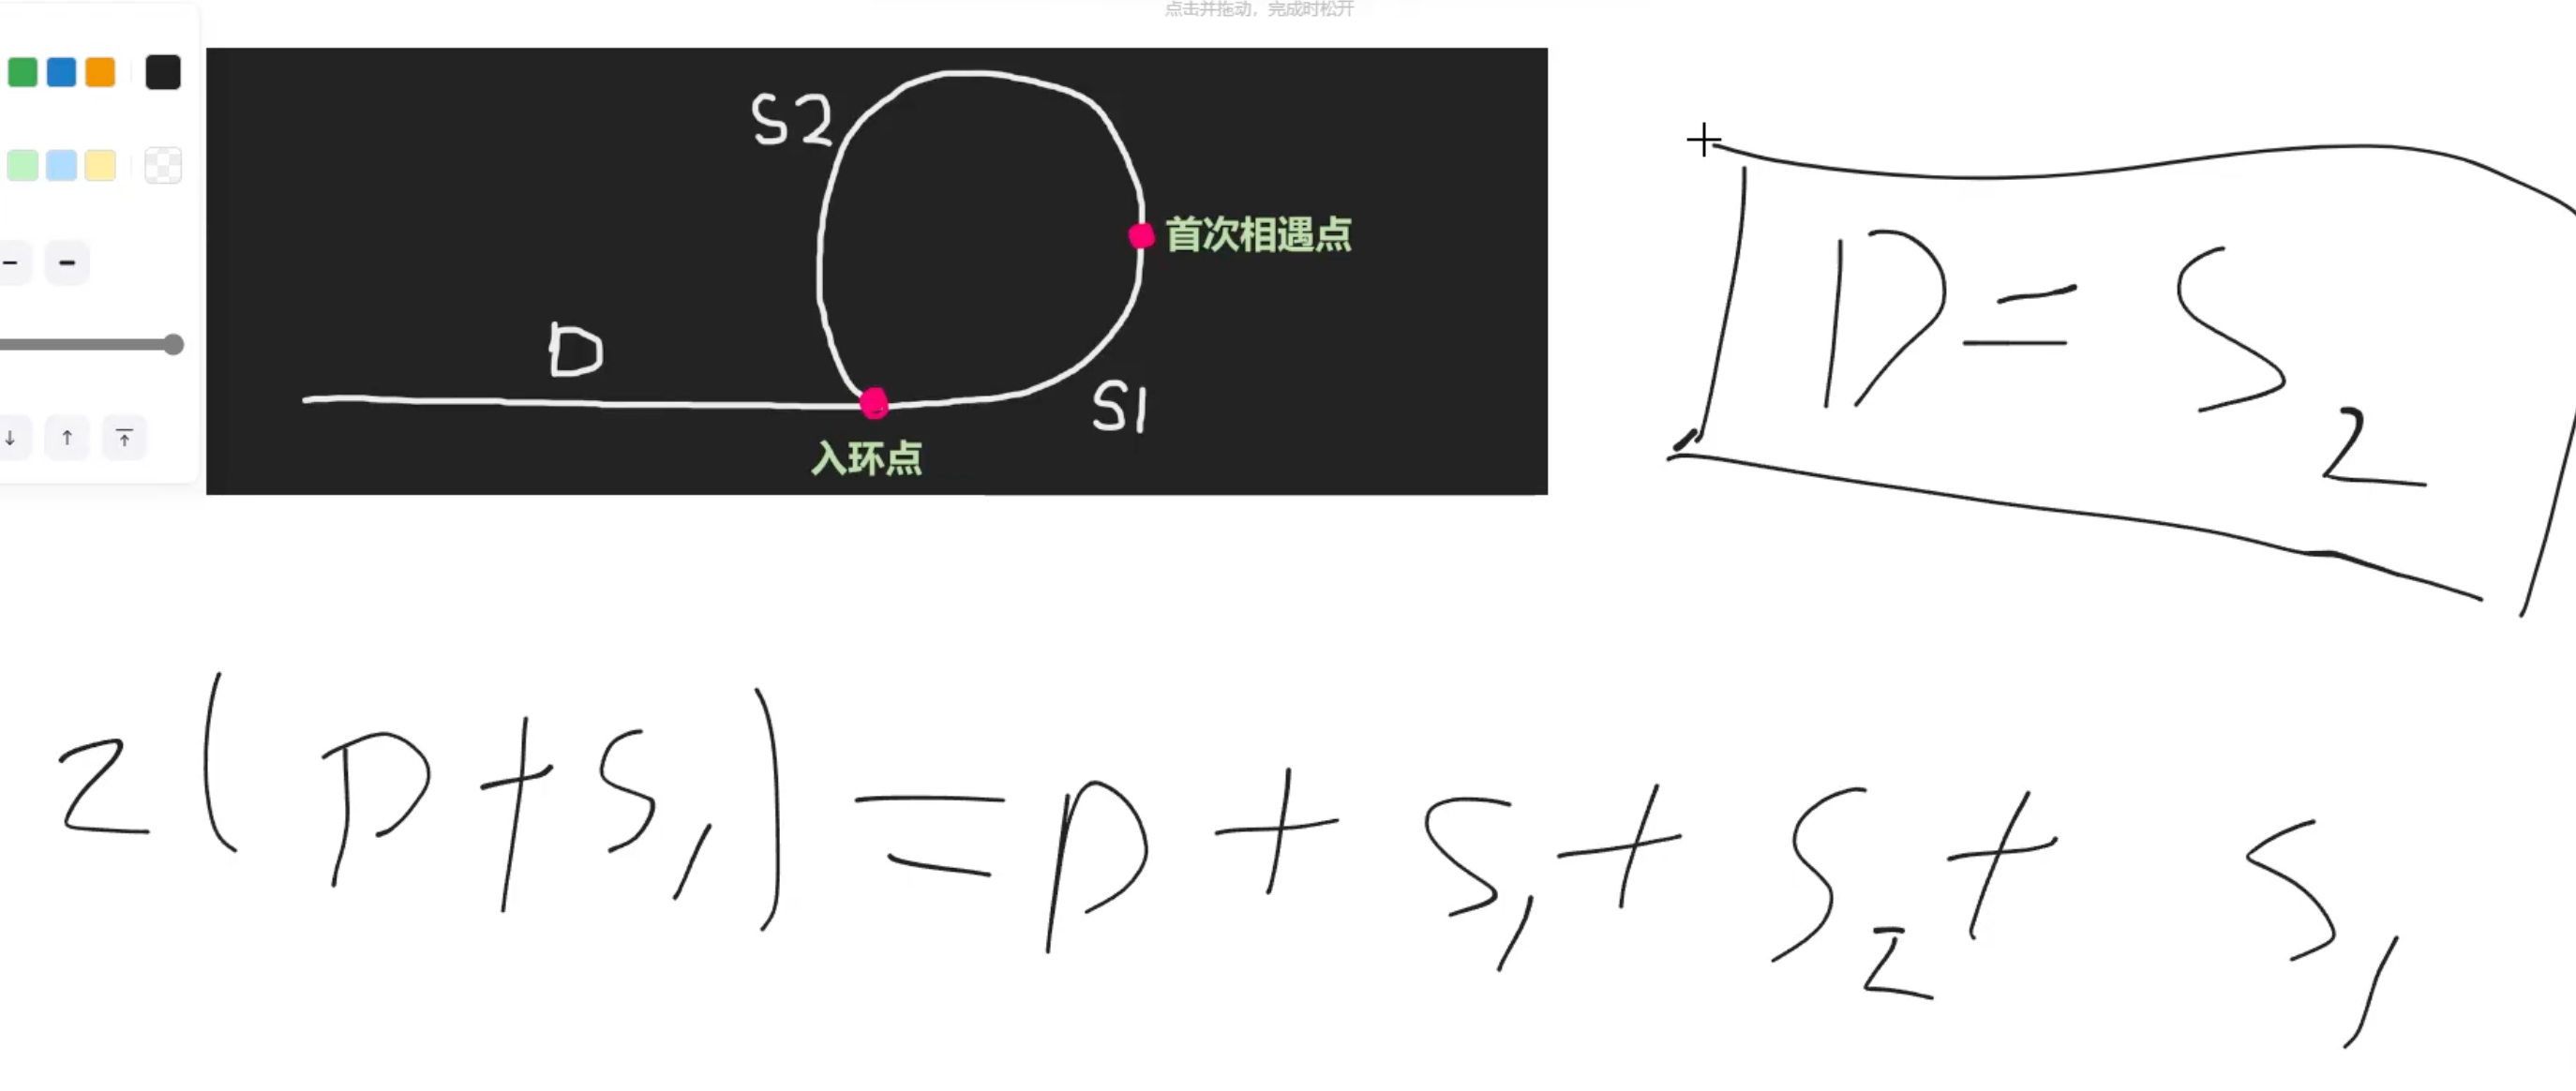 点击并拖动，完成时松开
S2
首次相遇点
D
S1
入环点
D = S2
2(D+S1) = D + S1 + S2 + S1